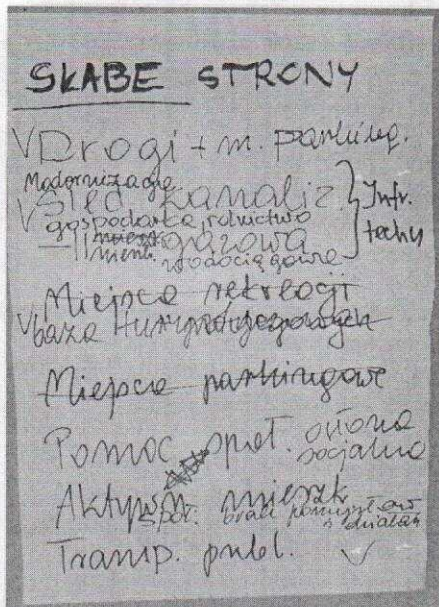 SŁABE STRONY
V Drogi + m. parking.
Modernizacja
V Sieć kanaliz. } Infr. techn
gospodarka, rolnictwo
—||— gazowa
wodociągowa
Miejsca rekreacji
V baza turyst
Miejsca parkingowe
Pomoc społ. osłona socjalna
Aktywn. mieszk.
społ. brak pomysłów
Transp. publ. V